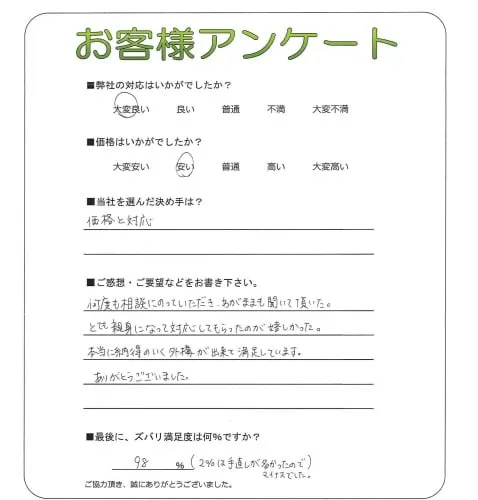 お客様アンケート
■弊社の対応はいかがでしたか？
大変良い 良い 普通 不満 大変不満
■価格はいかがでしたか？
大変安い 安い 普通 高い 大変高い
■当社を選んだ決め手は？
価格と対応
■ご感想・ご要望などをお書き下さい。
何度も相談にのっていただき、わがままも聞いて頂いた。
とても親身になって対応してもらったのが嬉しかった。
本当に納得のいく外構が出来て満足しています。
ありがとうございました。
■最後に、ズバリ満足度は何%ですか？
98 % (2%は手直しが多かったので
マイナスでした。)
ご協力頂き、誠にありがとうございました。